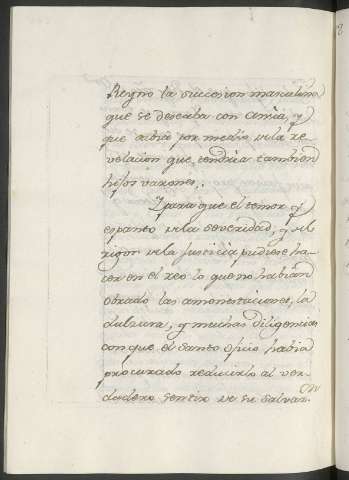 Reyno la succesion masculina
que se deseaba con ansia, y
que sabia por medio de la re-
velacion que tendria tambien
hijos varones.
Y para que el temor y
espanto de la severidad, y del
rigor de la justicia pudiese ha-
cer en el reo lo que no habian
obrado las amonestaciones, la
dulzura, y muchas diligencias
con que el santo oficio habia
procurado reducirlo al ver-
dadero sentir de su salvar-